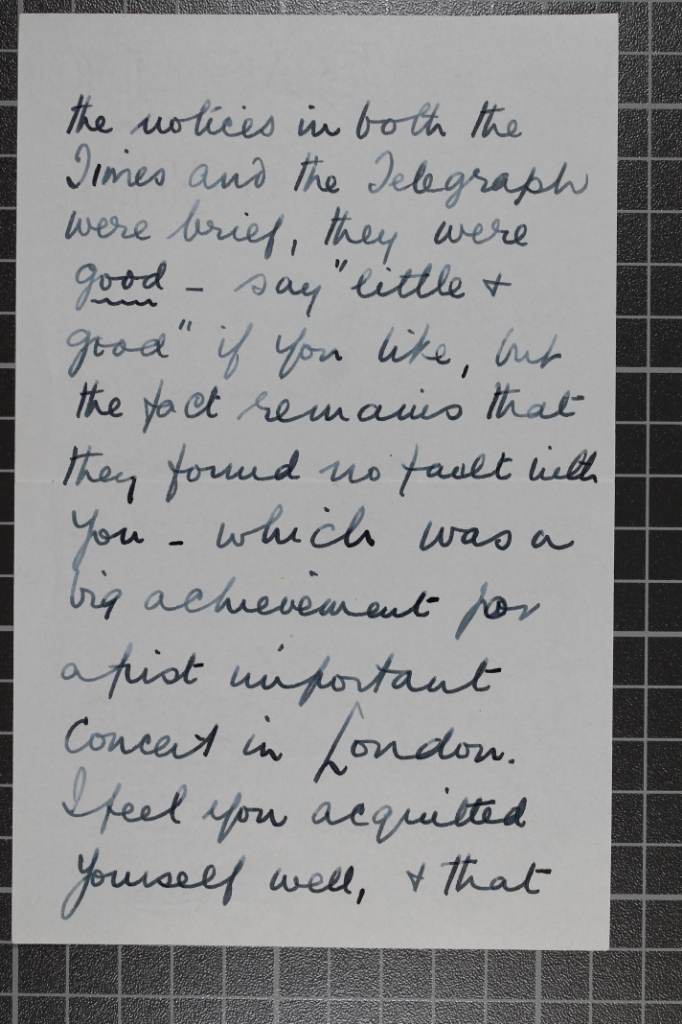 the notices in both the
Times and the Telegraph
were brief, they were
good - say "little +
good" if you like, but
the fact remains that
they found no fault with
you - which was a
big achievement for
a first important
Concert in London.
I feel you acquitted
yourself well, + that